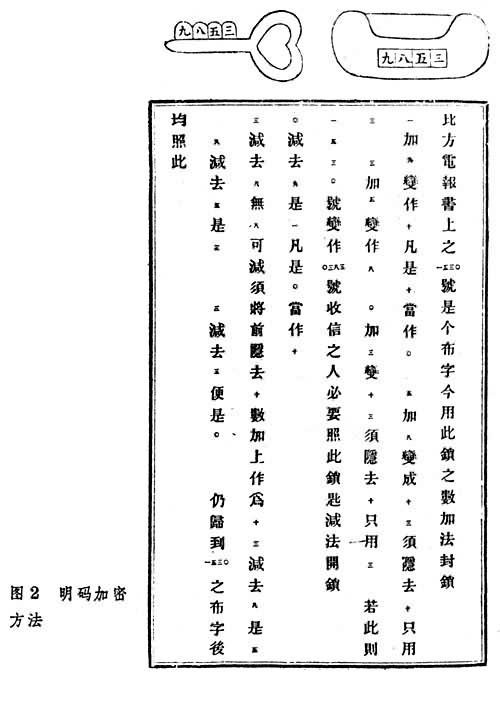 九八五三
九八五三
比方電報書上之一五三〇號是个布字今用此鎖之數加法封鎖
一加九變作十凡是十當作〇 五加八變成十三須隱去十只用
三 三加五變作八 〇加三變十三須隱去十只用三 若此則
一五三〇號變作〇三八三號收信之人必要照此鎖匙減法開鎖
〇減去九是一凡是〇當作十
三減去八無八可減須將前隱去十數加上作爲十三減去八是五
八減去五是三 三減去三便是〇 仍歸到一五三〇之布字後
均照此
图2 明码加密
方法